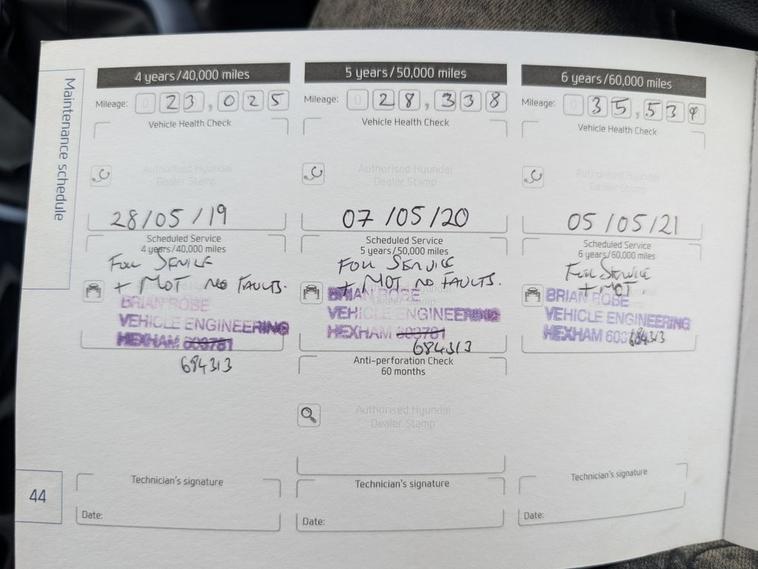 Maintenance schedule
4 years/40,000 miles
Mileage: 0 23,025
Vehicle Health Check
Authorised Hyundai
Dealer Stamp
28/05/19
Scheduled Service
4 years/40,000 miles
Full Service
+ MOT no Faults.
BRIAN ROBE
VEHICLE ENGINEERING
HEXHAM 603781
684313
Technician's signature
Date:
5 years/50,000 miles
Mileage: 0 28,338
Vehicle Health Check
Authorised Hyundai
Dealer Stamp
07/05/20
Scheduled Service
5 years/50,000 miles
Full Service
+ MOT no Faults.
BRIAN ROBE
VEHICLE ENGINEERING
HEXHAM 603781
684313
Anti-perforation Check
60 months
Authorised Hyundai
Dealer Stamp
Technician's signature
Date:
6 years/60,000 miles
Mileage: 0 35,539
Vehicle Health Check
Authorised Hyundai
Dealer Stamp
05/05/21
Scheduled Service
6 years/60,000 miles
Full Service
+ MOT.
BRIAN ROBE
VEHICLE ENGINEERING
HEXHAM 603
684313
Technician's signature
Date:
44